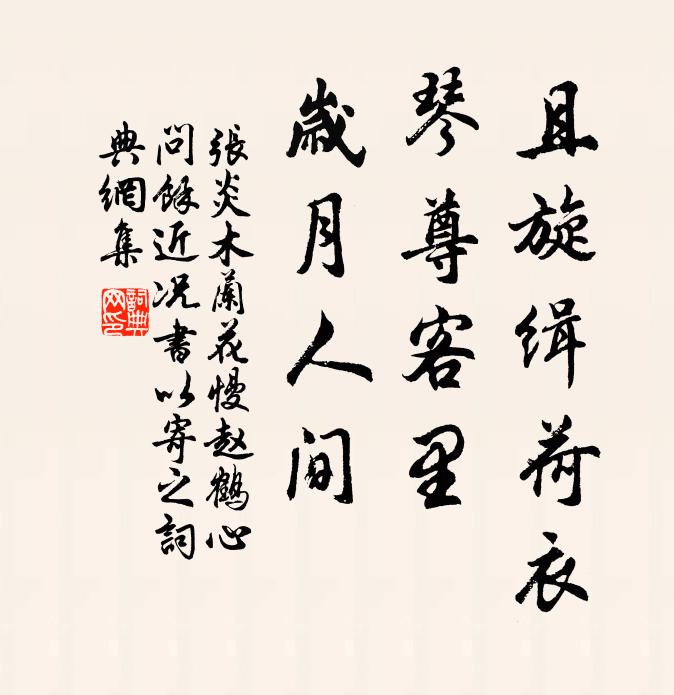 且旋缉荷衣
琴尊客里
歳月人间
張炎木蘭花慢赵鶴心
问餘近况書以寄之詞
典網集
詞典
网印